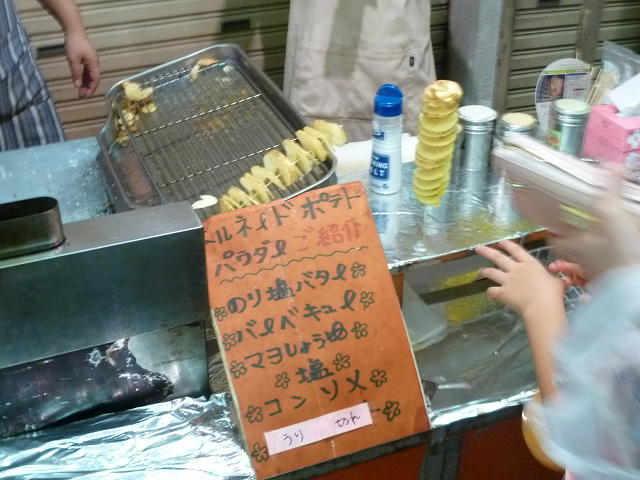 トルネードポテト
パウダーご紹介
のり塩バター
バーベキュー
マヨしょうゆ
塩
コンソメ
うり切れ